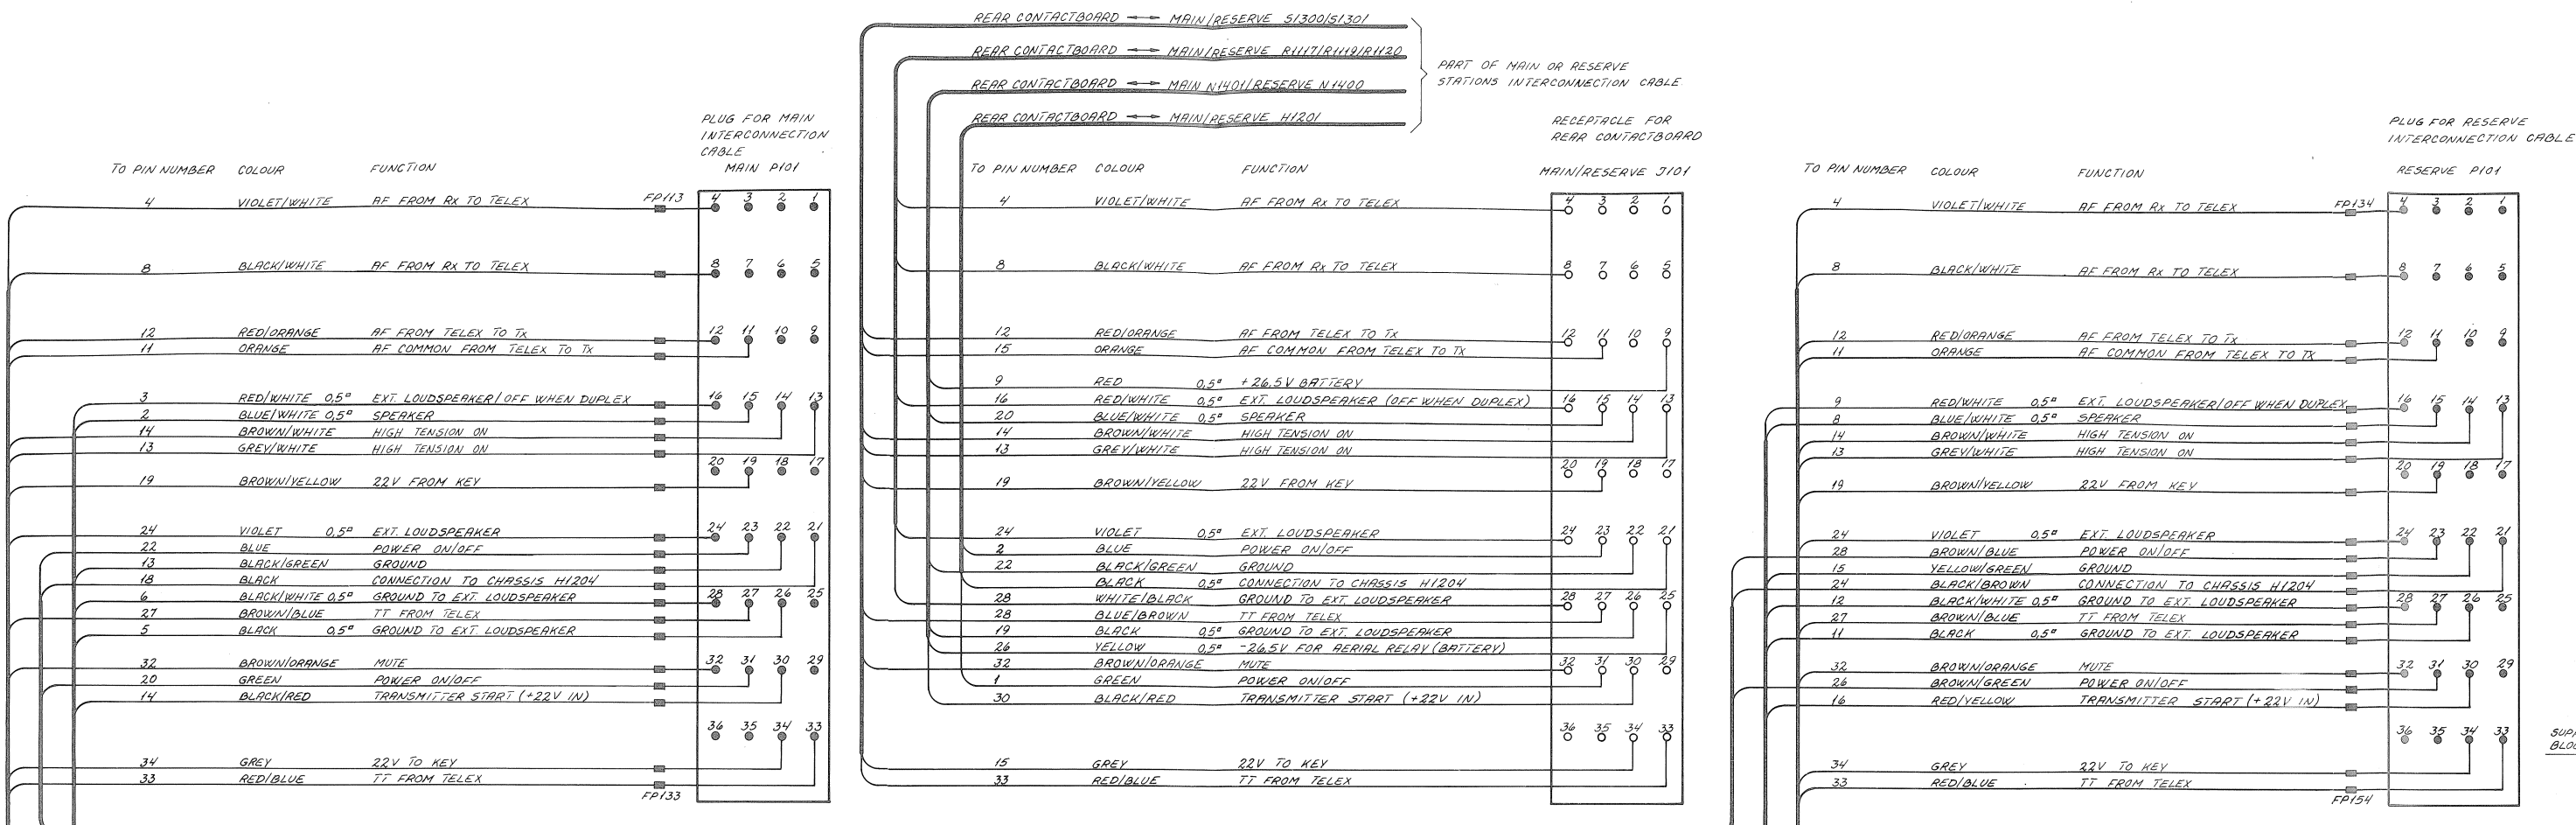 REAR CONTACTBOARD ⟷ MAIN/RESERVE S1300/S1301
REAR CONTACTBOARD ⟷ MAIN/RESERVE R1117/R1119/R1120
REAR CONTACTBOARD ⟷ MAIN N1401/RESERVE N1400
REAR CONTACTBOARD ⟷ MAIN/RESERVE H1201
PART OF MAIN OR RESERVE
STATIONS INTERCONNECTION CABLE.
PLUG FOR MAIN
INTERCONNECTION
CABLE
MAIN P101
TO PIN NUMBER COLOUR FUNCTION
4 VIOLET/WHITE AF FROM Rx TO TELEX FP113 4 3 2 1
8 BLACK/WHITE AF FROM Rx TO TELEX 8 7 6 5
12 RED/ORANGE AF FROM TELEX TO Tx 12 11 10 9
11 ORANGE AF COMMON FROM TELEX TO Tx
3 RED/WHITE 0,5□ EXT. LOUDSPEAKER/OFF WHEN DUPLEX 16 15 14 13
2 BLUE/WHITE 0,5□ SPEAKER
14 BROWN/WHITE HIGH TENSION ON
13 GREY/WHITE HIGH TENSION ON
20 19 18 17
19 BROWN/YELLOW 22V FROM KEY
24 VIOLET 0,5□ EXT. LOUDSPEAKER 24 23 22 21
22 BLUE POWER ON/OFF
13 BLACK/GREEN GROUND
18 BLACK CONNECTION TO CHASSIS H1204
6 BLACK/WHITE 0,5□ GROUND TO EXT. LOUDSPEAKER 28 27 26 25
27 BROWN/BLUE TT FROM TELEX
5 BLACK 0,5□ GROUND TO EXT. LOUDSPEAKER
32 BROWN/ORANGE MUTE 32 31 30 29
20 GREEN POWER ON/OFF
14 BLACK/RED TRANSMITTER START (+22V IN)
36 35 34 33
34 GREY 22V TO KEY
33 RED/BLUE TT FROM TELEX
FP133
RECEPTACLE FOR
REAR CONTACTBOARD
MAIN/RESERVE J101
TO PIN NUMBER COLOUR FUNCTION
4 VIOLET/WHITE AF FROM Rx TO TELEX 4 3 2 1
8 BLACK/WHITE AF FROM Rx TO TELEX 8 7 6 5
12 RED/ORANGE AF FROM TELEX TO Tx 12 11 10 9
15 ORANGE AF COMMON FROM TELEX TO Tx
9 RED 0,5□ +26,5V BATTERY
16 RED/WHITE 0,5□ EXT. LOUDSPEAKER (OFF WHEN DUPLEX) 16 15 14 13
20 BLUE/WHITE 0,5□ SPEAKER
14 BROWN/WHITE HIGH TENSION ON
13 GREY/WHITE HIGH TENSION ON
20 19 18 17
19 BROWN/YELLOW 22V FROM KEY
24 VIOLET 0,5□ EXT. LOUDSPEAKER 24 23 22 21
2 BLUE POWER ON/OFF
22 BLACK/GREEN GROUND
BLACK 0,5□ CONNECTION TO CHASSIS H1204
28 WHITE/BLACK GROUND TO EXT. LOUDSPEAKER 28 27 26 25
28 BLUE/BROWN TT FROM TELEX
19 BLACK 0,5□ GROUND TO EXT. LOUDSPEAKER
26 YELLOW 0,5□ -26,5V FOR AERIAL RELAY (BATTERY)
32 BROWN/ORANGE MUTE 32 31 30 29
1 GREEN POWER ON/OFF
30 BLACK/RED TRANSMITTER START (+22V IN)
36 35 34 33
15 GREY 22V TO KEY
33 RED/BLUE TT FROM TELEX
PLUG FOR RESERVE
INTERCONNECTION CABLE
RESERVE P101
TO PIN NUMBER COLOUR FUNCTION
4 VIOLET/WHITE AF FROM Rx TO TELEX FP134 4 3 2 1
8 BLACK/WHITE AF FROM Rx TO TELEX 8 7 6 5
12 RED/ORANGE AF FROM TELEX TO Tx 12 11 10 9
11 ORANGE AF COMMON FROM TELEX TO Tx
9 RED/WHITE 0,5□ EXT. LOUDSPEAKER/OFF WHEN DUPLEX 16 15 14 13
8 BLUE/WHITE 0,5□ SPEAKER
14 BROWN/WHITE HIGH TENSION ON
13 GREY/WHITE HIGH TENSION ON
20 19 18 17
19 BROWN/YELLOW 22V FROM KEY
24 VIOLET 0,5□ EXT. LOUDSPEAKER 24 23 22 21
28 BROWN/BLUE POWER ON/OFF
15 YELLOW/GREEN GROUND
24 BLACK/BROWN CONNECTION TO CHASSIS H1204
12 BLACK/WHITE 0,5□ GROUND TO EXT. LOUDSPEAKER 28 27 26 25
27 BROWN/BLUE TT FROM TELEX
11 BLACK 0,5□ GROUND TO EXT. LOUDSPEAKER
32 BROWN/ORANGE MUTE 32 31 30 29
26 BROWN/GREEN POWER ON/OFF
16 RED/YELLOW TRANSMITTER START (+22V IN)
36 35 34 33
34 GREY 22V TO KEY
33 RED/BLUE TT FROM TELEX
FP154